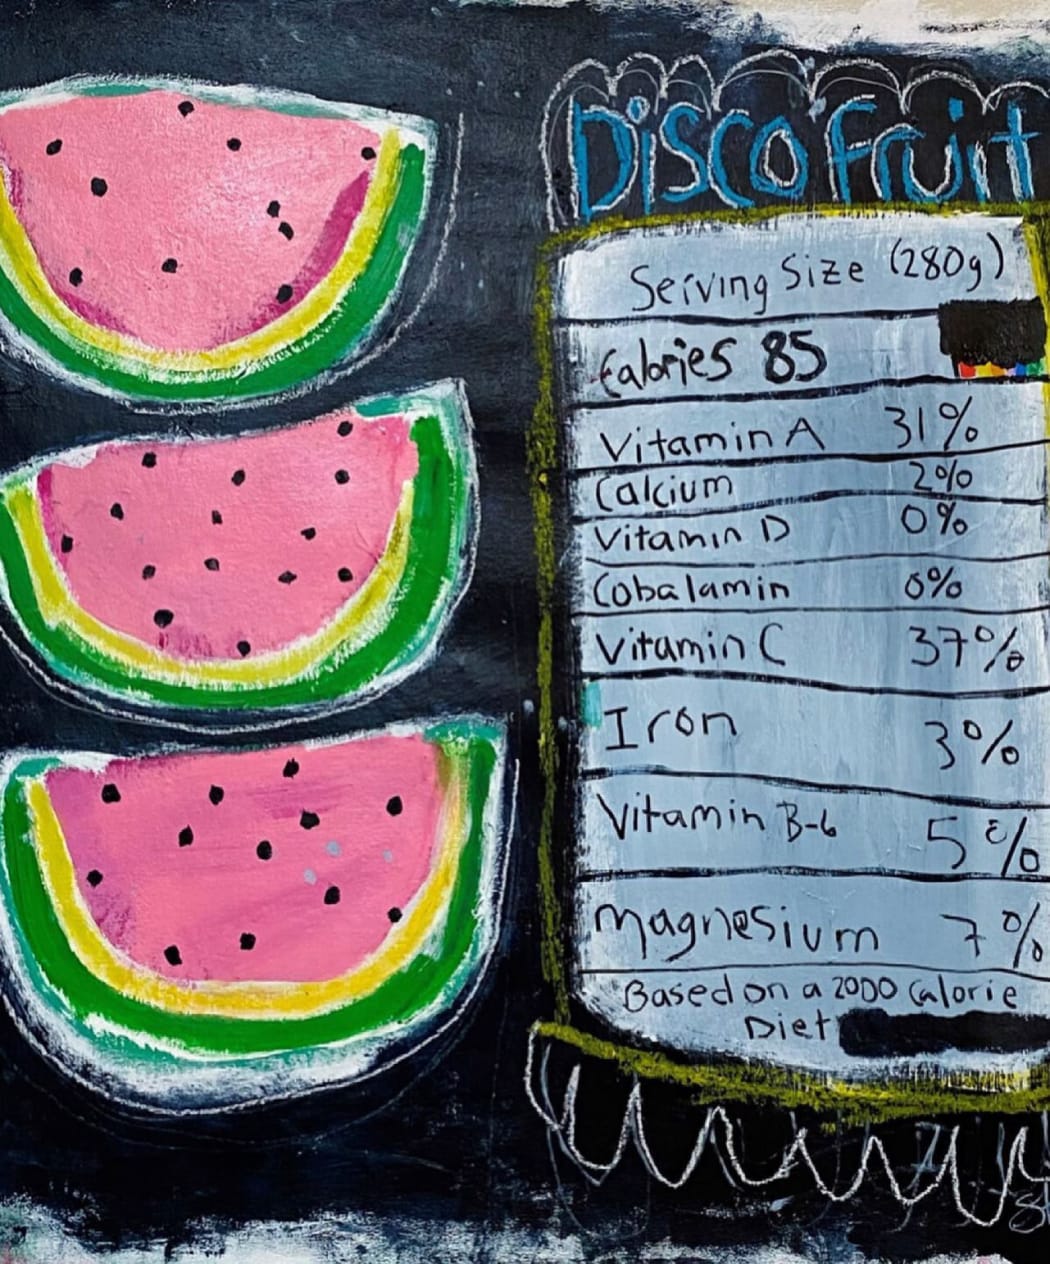 Disco Fruit
Serving Size (280g)
Calories 85
Vitamin A 31%
Calcium 2%
Vitamin D 0%
Cobalamin 0%
Vitamin C 37%
Iron 3%
Vitamin B-6 5%
Magnesium 7%
Based on a 2000 Calorie
Diet